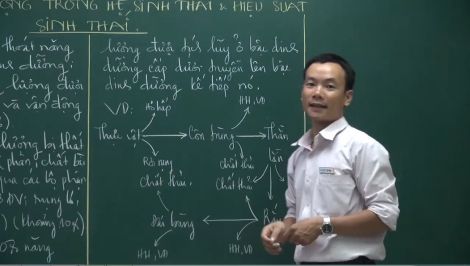 TRONG HỆ SINH THÁI & HIỆU SUẤT
SINH THÁI.
thoát năng
dưỡng:
lượng đưa
và vận động
lượng bị thất
phần chất bài
qua các bộ phận
ở ĐV: rụng lá,
) (khoảng 10%)
năng
lượng được tích lũy ở bậc dinh
dưỡng cấp dưới truyền lên bậc
dinh dưỡng kế tiếp no.
VD:
Hô hấp
HH, VĐ
Thực vật → Côn trùng → Thằn
lằn
Rơi rụng
Chất thải
chất thải
Chất thải
Đại bàng ← Rắn
HH, VĐ
HH, VĐ